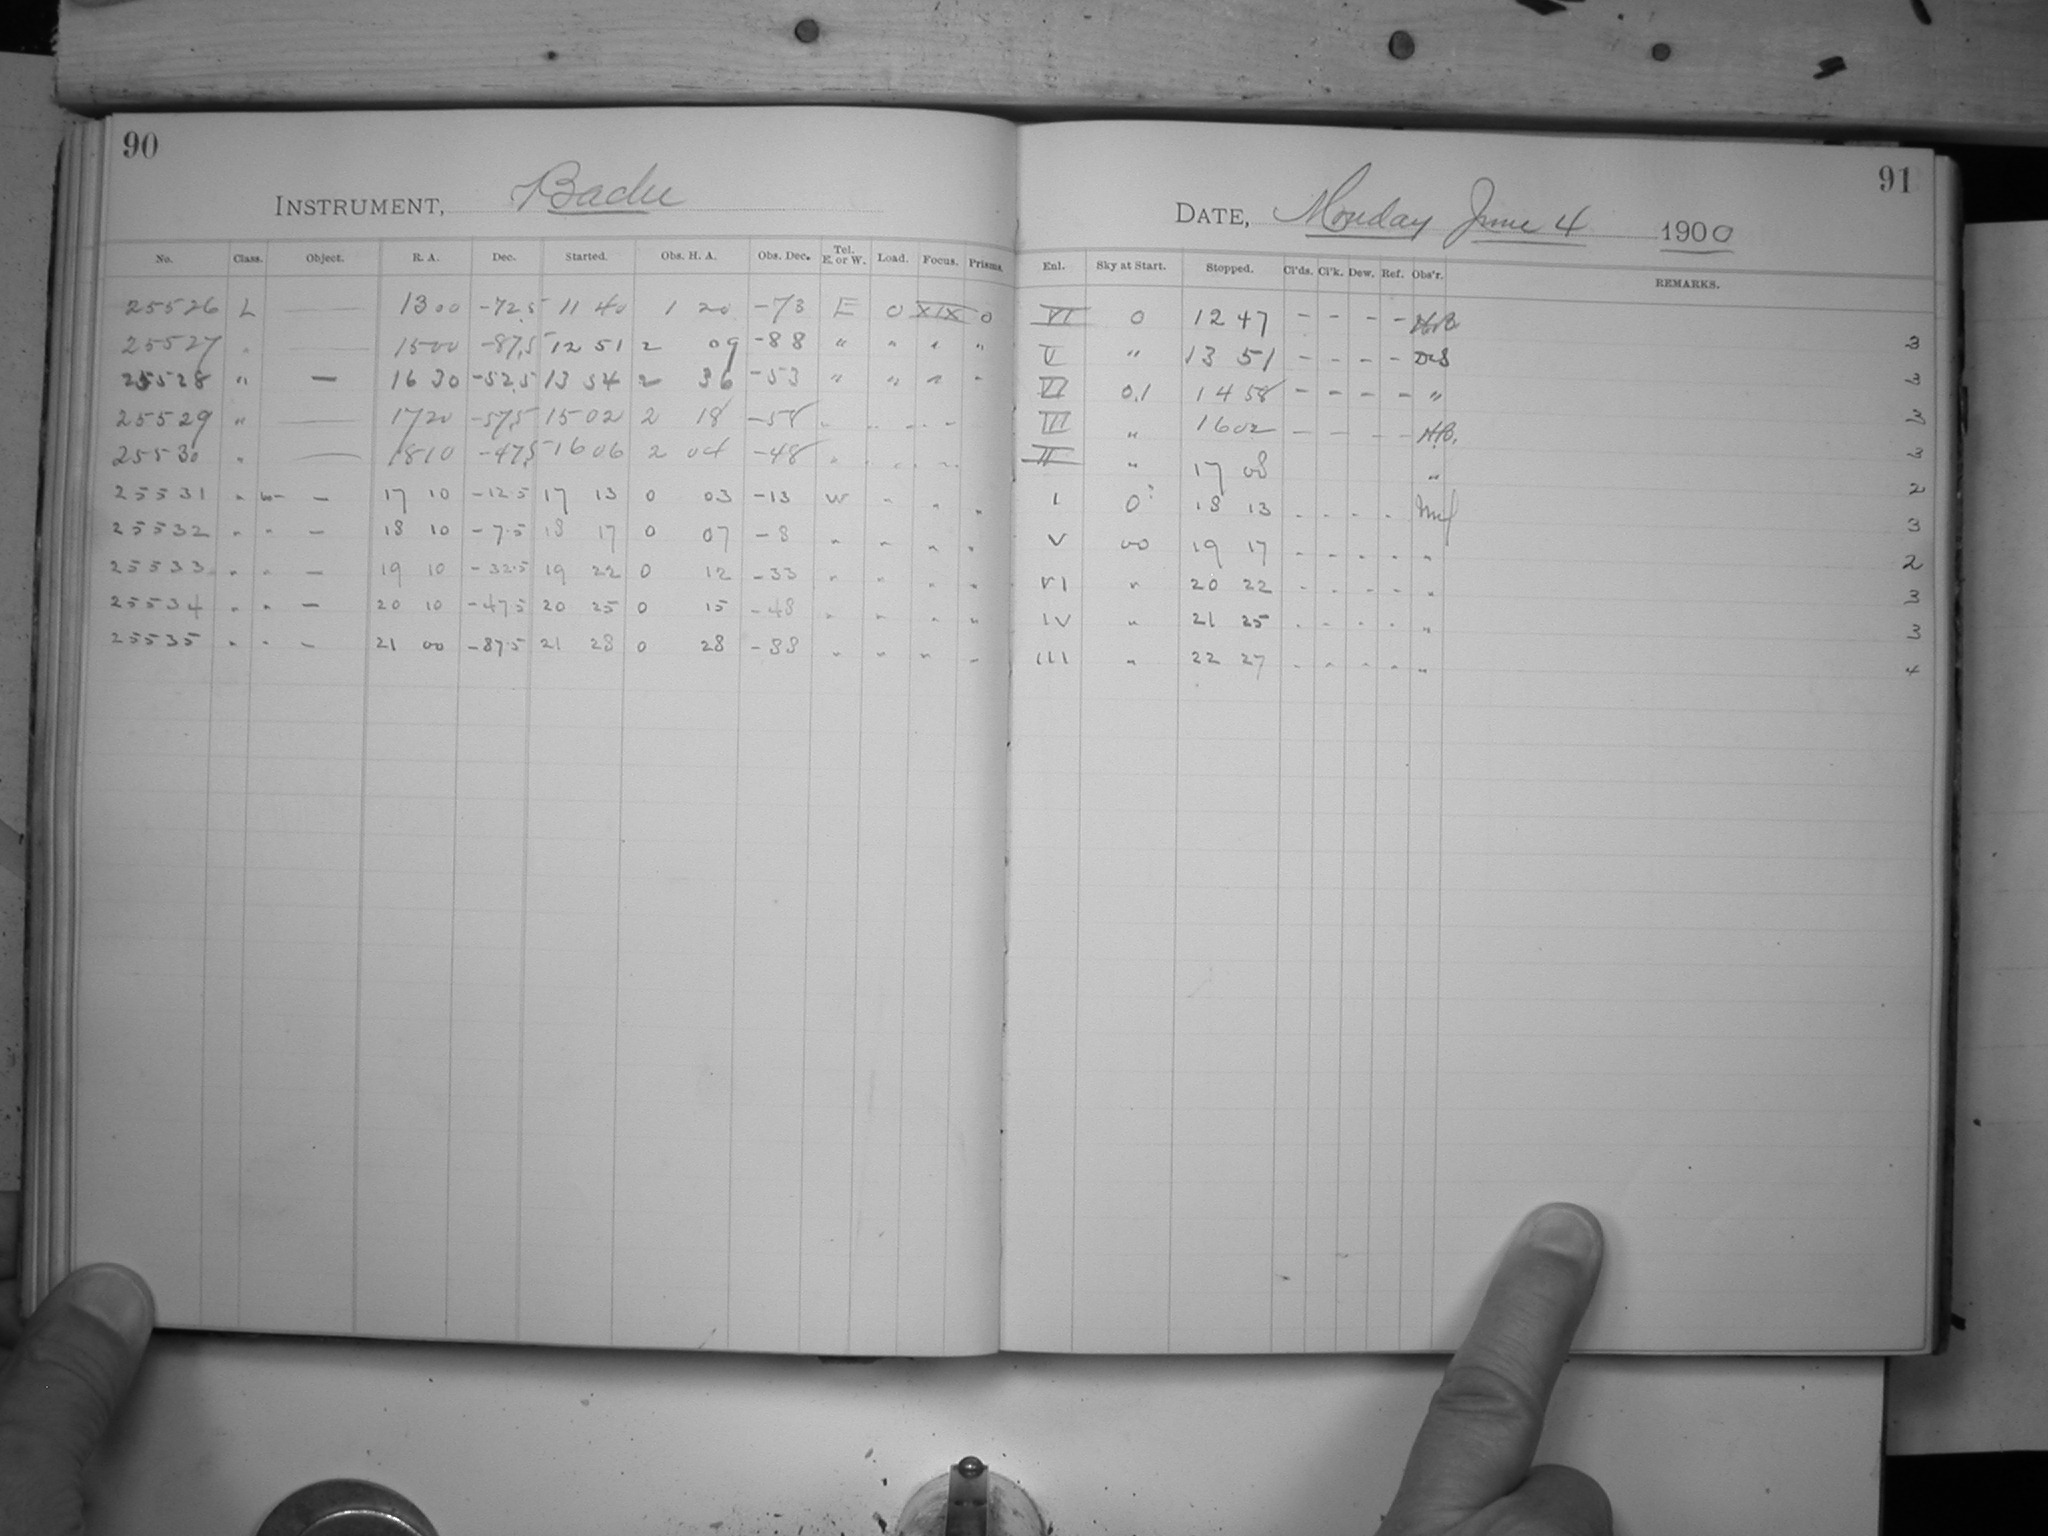 90
INSTRUMENT, Bache
No. Class. Object. R. A. Dec. Started. Obs. H. A. Obs. Dec. Tel. E. or W. Load. Focus. Prisms.
25526 L — 13 00 -72.5 11 40 1 20 -73 E 0 XIX 0
25527 " — 15 00 -87.5 12 51 2 09 -88 " " " "
25528 " — 16 30 -52.5 13 54 2 36 -53 " " " "
25529 " — 17 20 -57.5 15 02 2 18 -58 " " " "
25530 " — 18 10 -47.5 16 06 2 04 -48 " " " "
25531 " — 17 10 -12.5 17 13 0 03 -13 W " " "
25532 " " — 18 10 -7.5 18 17 0 07 -8 " " " "
25533 " " — 19 10 -32.5 19 22 0 12 -33 " " " "
25534 " " — 20 10 -47.5 20 25 0 15 -48 " " " "
25535 " " — 21 00 -87.5 21 28 0 28 -88 " " " "
91
DATE, Monday June 4 1900
Enl. Sky at Start. Stopped. Cl'ds. Cl'k. Dew. Ref. Obs'r. REMARKS.
VI 0 12 47 - - - - 3
V " 13 51 - - - - 3
VI 0.1 14 58 - - - - " 3
III " 16 02 - - - - H.B. 3
II " 17 08 " 2
I 0? 18 13 - - - - 3
V 00 19 17 - - - - " 2
VI " 20 22 - - - - " 3
IV " 21 25 - - - - " 3
III " 22 27 - - - - " 4